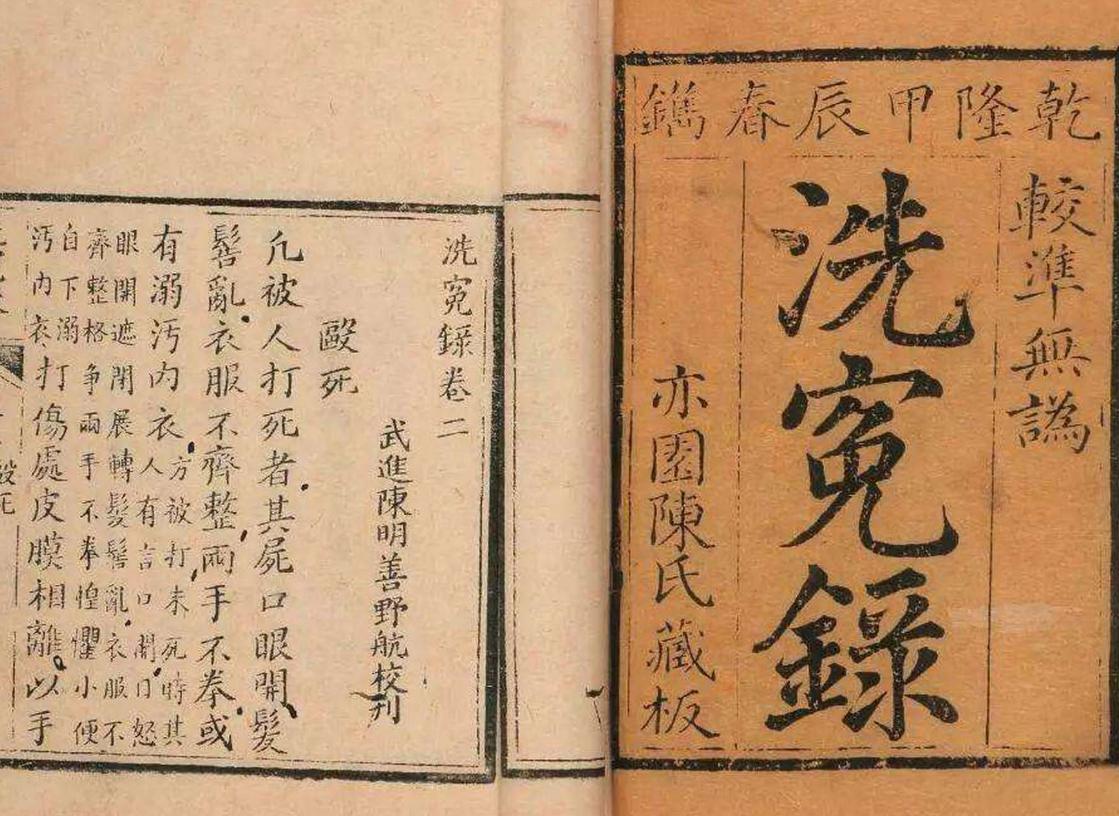 乾隆甲辰春鐫
較準無譌
洗冤錄
亦園陳氏藏板
洗冤錄卷二
武進陳明善野航校刊
毆死
凢被人打死者其屍口眼開髮
髻亂衣服不齊整兩手不拳或
有溺汚内衣
方被打未死時其
人有言口開日怒
眼開遮閉展轉髮髻亂衣服不
齊整格争兩手不拳惶懼小便
自下溺
汚内衣
打傷處皮膜相離以手